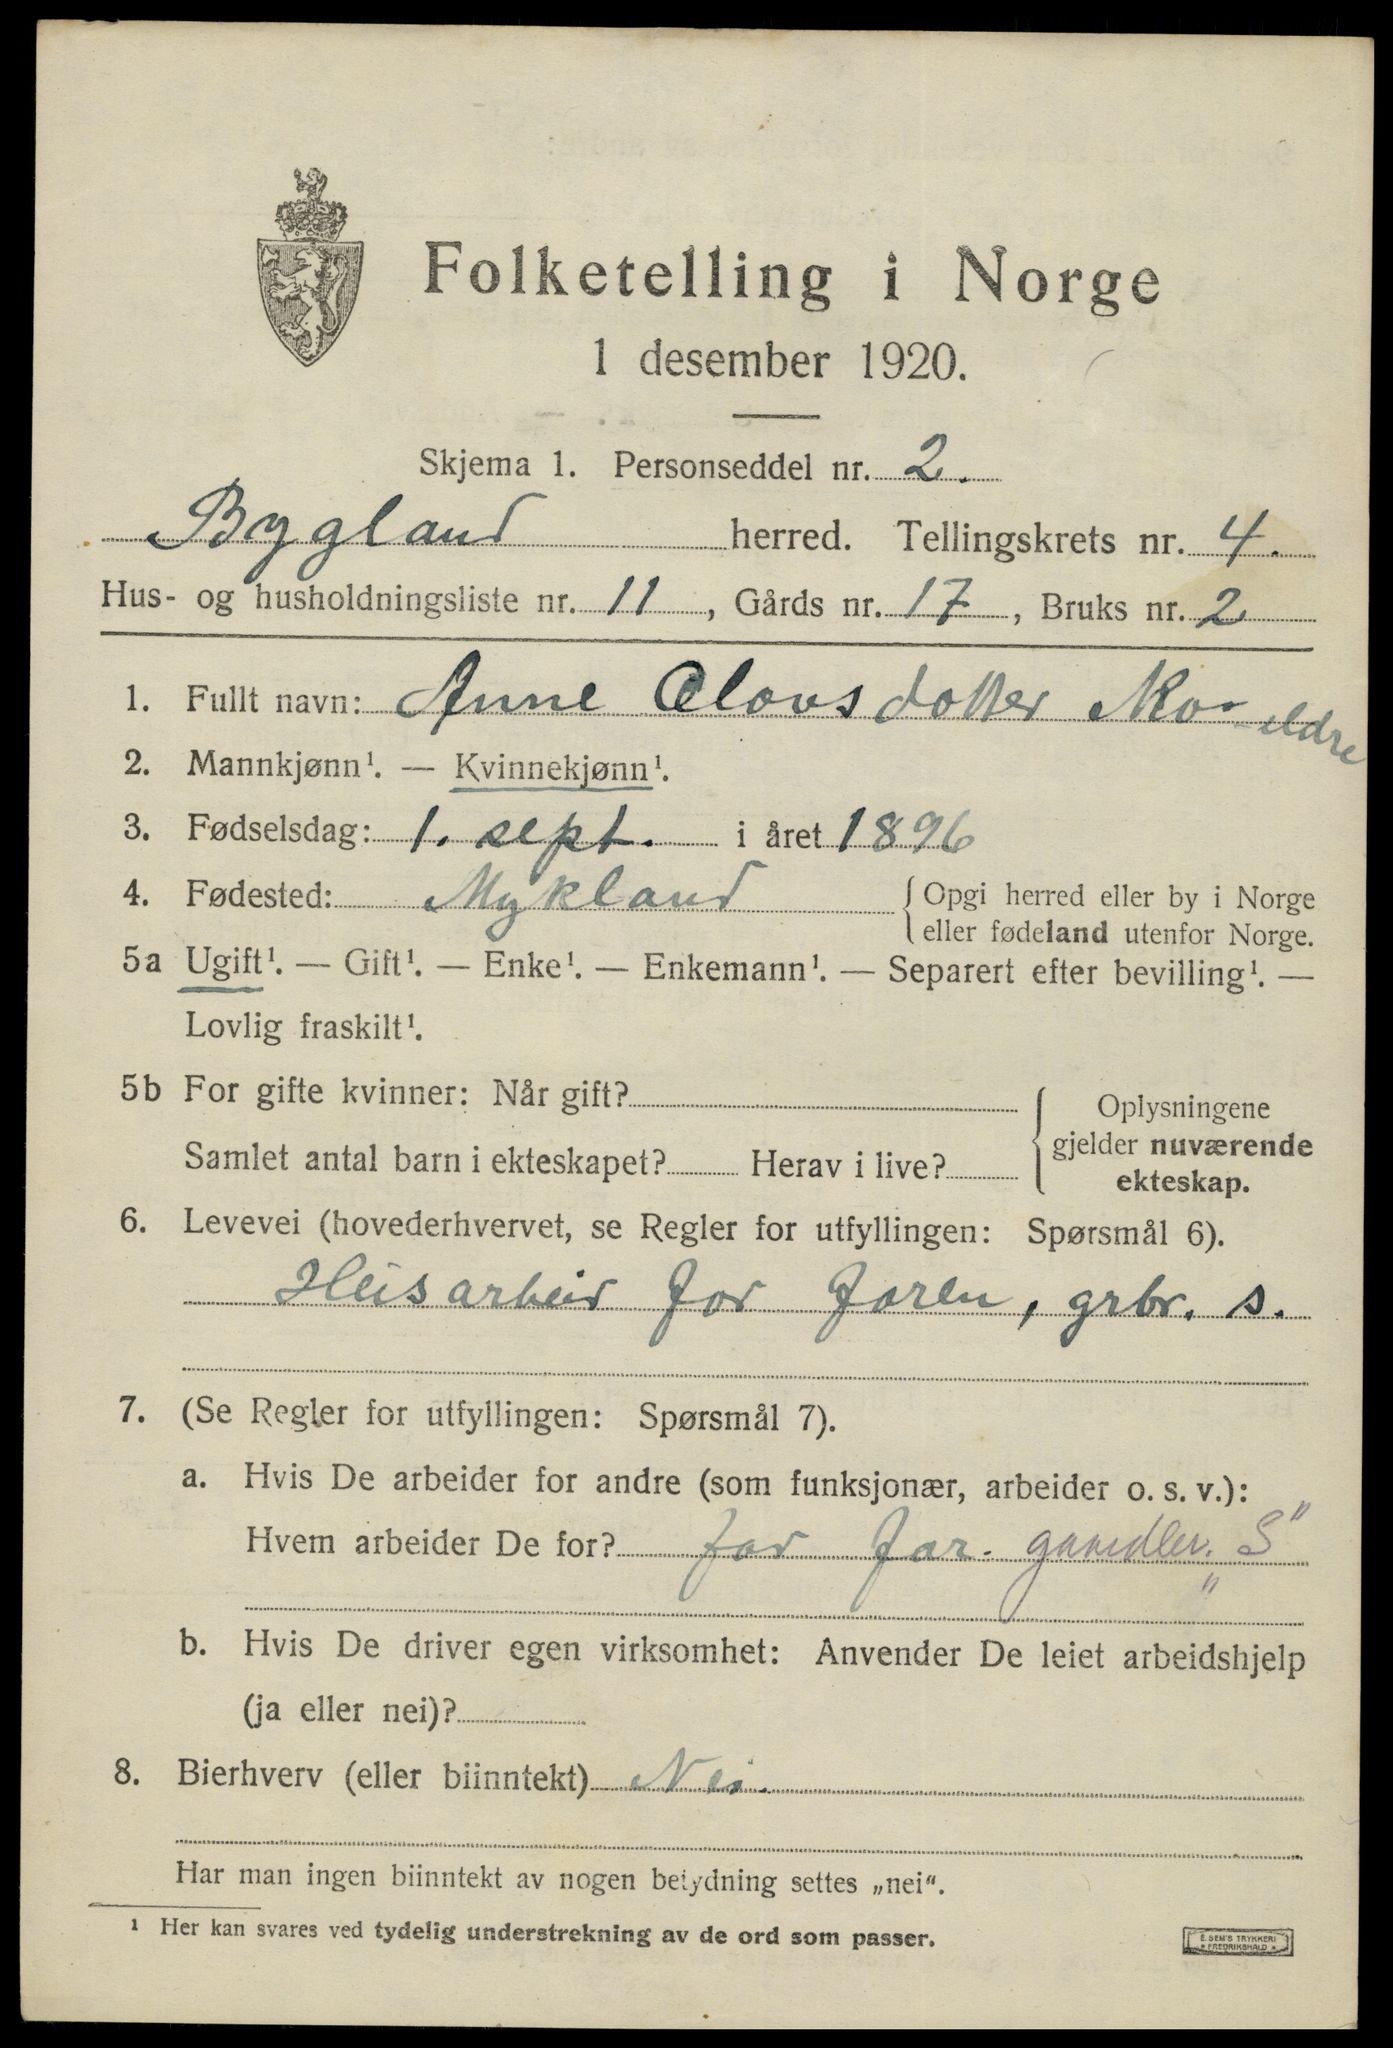 Folketelling i Norge
1 desember 1920.
Skjema 1. Personseddel nr. 2.
Bygland herred. Tellingskrets nr. 4.
Hus- og husholdningsliste nr. 11, Gårds nr. 17, Bruks nr. 2
1. Fullt navn: Anne Olovsdotter Mo-eldre
2. Mannkjønn¹. — Kvinnekjønn¹.
3. Fødselsdag: 1. sept. i året 1896
4. Fødested: Mykland { Opgi herred eller by i Norge
eller fødeland utenfor Norge.
5a Ugift¹. — Gift¹. — Enke¹. — Enkemann¹. — Separert efter bevilling¹. —
Lovlig fraskilt¹.
5b For gifte kvinner: Når gift?
Samlet antal barn i ekteskapet? Herav i live?
Oplysningene
gjelder nuværende
ekteskap.
6. Levevei (hovederhvervet, se Regler for utfyllingen: Spørsmål 6).
Heisarbeid for faren, grbr. s.
7. (Se Regler for utfyllingen: Spørsmål 7).
a. Hvis De arbeider for andre (som funksjonær, arbeider o. s. v.):
Hvem arbeider De for? for far. S"
"
b. Hvis De driver egen virksomhet: Anvender De leiet arbeidshjelp
(ja eller nei)?
8. Bierhverv (eller biinntekt) Nei.
Har man ingen biinntekt av nogen betydning settes „nei“.
¹ Her kan svares ved tydelig understrekning av de ord som passer.
E. SEM'S TRYKKERI
* FREDRIKSHALD *